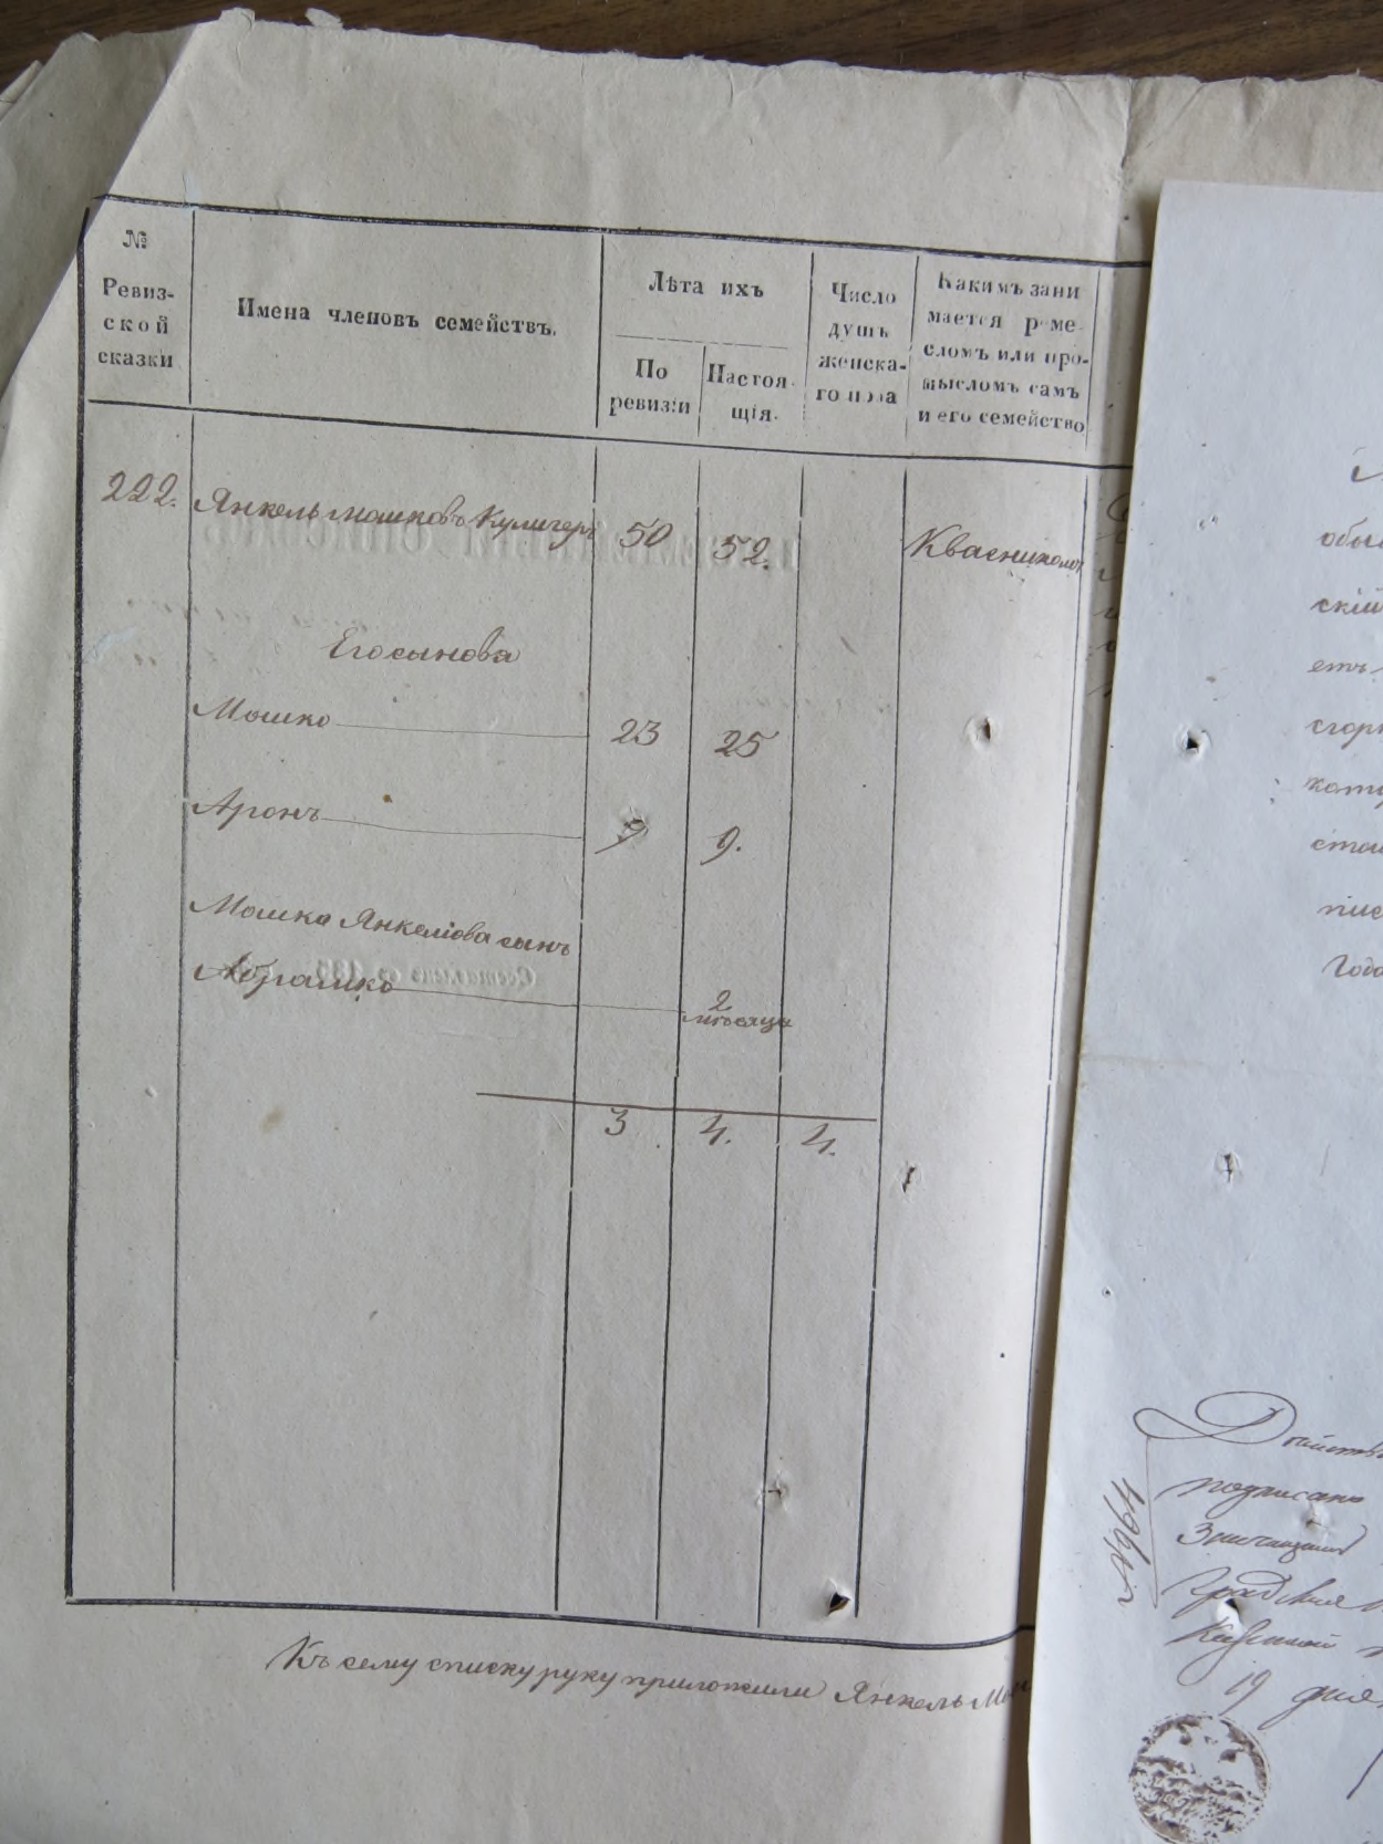 №
Ревиз-
ской
сказки
Имена членовъ семействъ.
Лѣта ихъ
По
ревизіи
Настоя-
щія.
Число
душъ
женска-
го пола
Какимъ зани
мается реме-
сломъ или про-
мысломъ самъ
и его семейство
222. Янкель Мошковъ Куличеръ 50 52. Квасникомъ
Его сынова
Мошко 23 25
Аронъ 9 9.
Мошка Янкеліова сынъ
Абрашко 2
мѣсяца
3 4. 4.
Къ сему списку руку приложили Янкель
обы
скій
етъ
сгор
кото
стои
пис
Года
подписано
19 дня